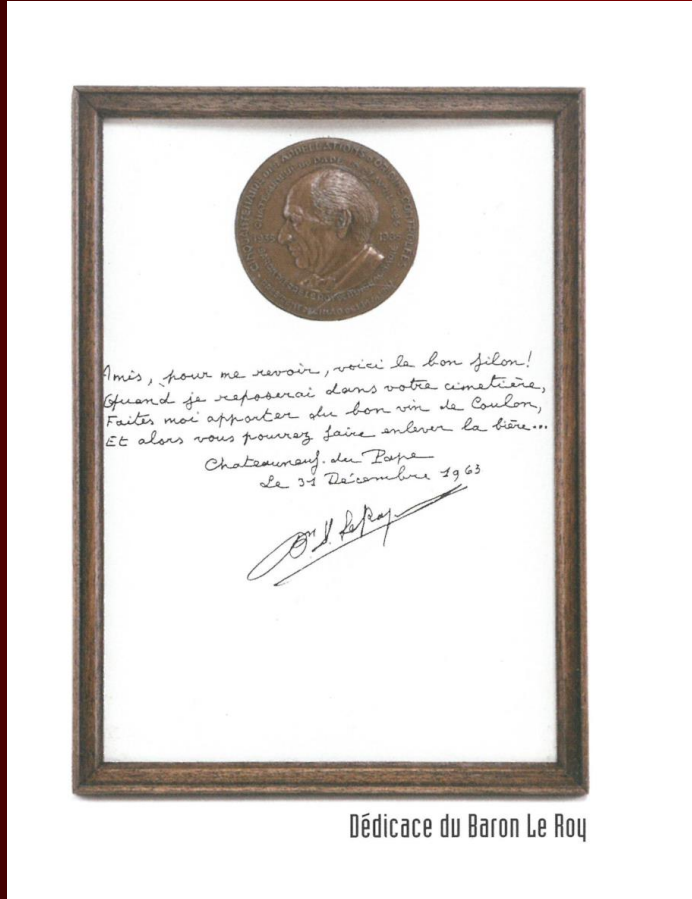 CINQUANTENAIRE DES APPELLATIONS
Amis, pour me revoir, voici le bon filon!
Quand je reposerai dans votre cimetière,
Faites moi apporter du bon vin de Coulon,
Et alors vous pourrez faire enlever la bière...
Chateauneuf. du Pape
Le 31 Décembre 1963
Bon. Le Roy
Dédicace du Baron Le Roy